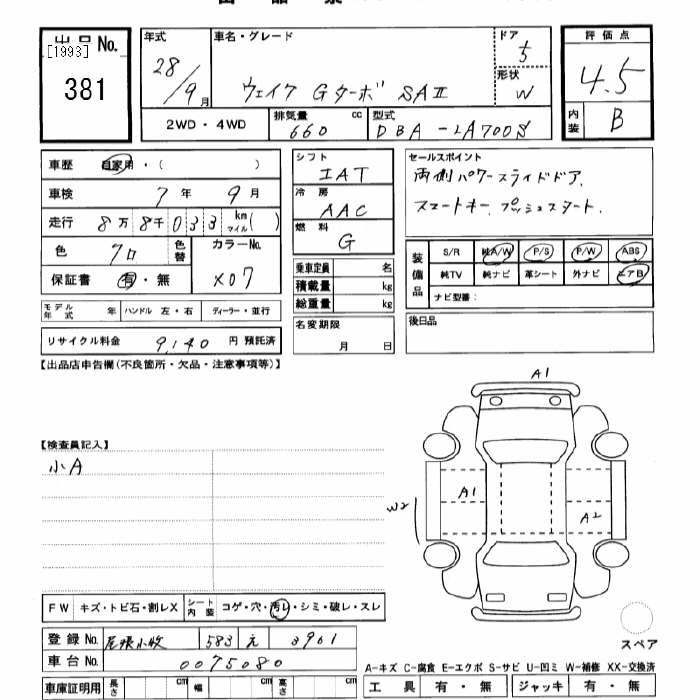 出品No.
[1993]
381
年式
28/9月
車名・グレード
ウェイク Gターボ SAII
ドア
5
形状
W
評価点
4.5
内装
B
2WD・4WD
排気量
660 cc
型式
DBA-LA700S
車歴 自家用・( )
車検 7年 9月
走行 8万8千033 km マイル( )
色 クロ 色替
カラーNo.
X07
保証書 有・無
モデル年式 年 ハンドル 左・右 ディーラー・並行
リサイクル料金 9,140 円 預託済
シフト
IAT
冷房
AAC
燃料
G
乗車定員 名
積載量 kg
総重量 kg
名変期限
月 日
セールスポイント
両側パワースライドドア.
スマートキー.プッシュスタート.
装備品
S/R 純A/W P/S P/W ABS
純TV 純ナビ 革シート 外ナビ エアB
ナビ型番:
後日品
【出品店申告欄(不良箇所・欠品・注意事項等)】
【検査員記入】
小A
A1
A1
W2
A2
スペア
FW キズ・トビ石・割レX シート内装 コゲ・穴・汚レ・シミ・破レ・スレ
登録No. 尾張小牧 583 え 3961
車台No. 0075080
車庫証明用 長さ cm 幅 cm 高さ cm
A-キズ C-腐食 E-エクボ S-サビ U-凹ミ W-補修 XX-交換済
工具 有・無 ジャッキ 有・無